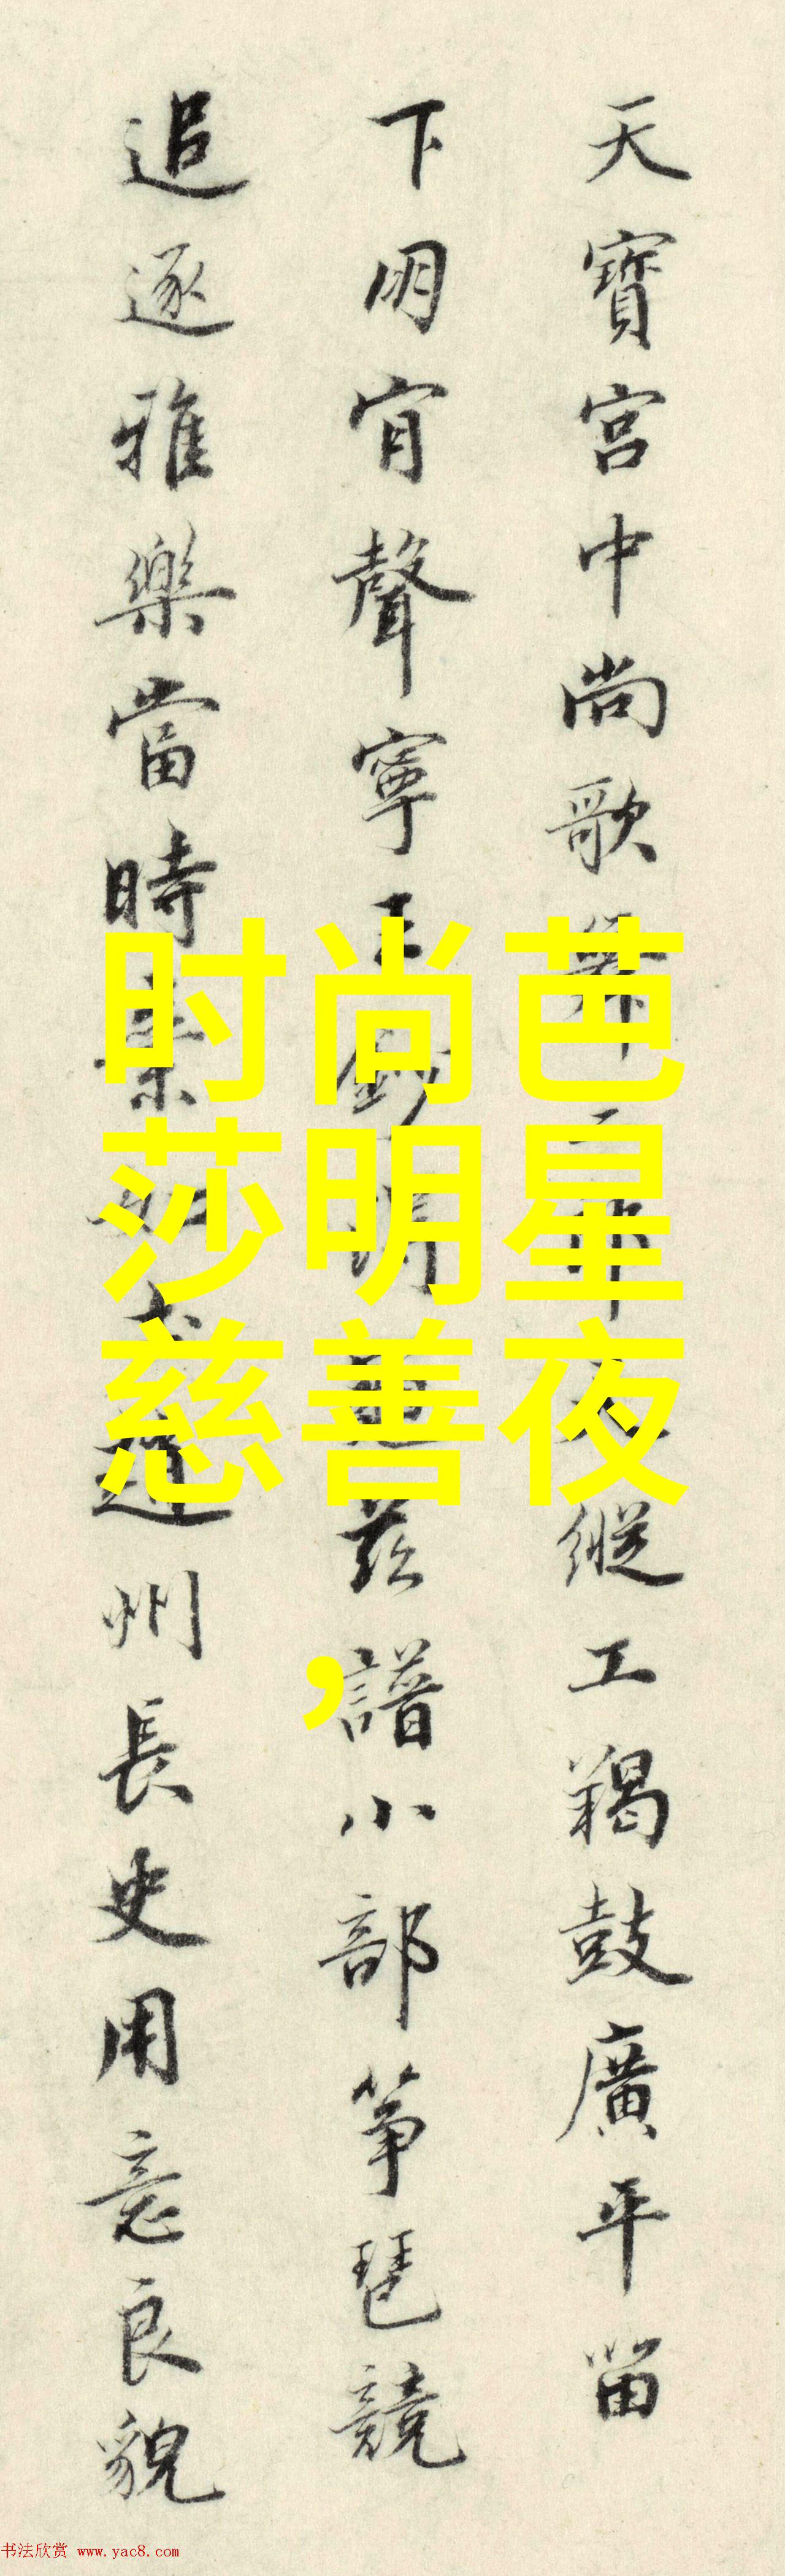 天寶宮中尚歌舞二 縱工羯鼓廣平畱
下明宵聲寧王 龜茲譜小部箏琶競
追逐雅樂當時素 通州長史用意良貌
时尚芭
莎明星
慈善夜
，
书法欣赏 www.yac8.com